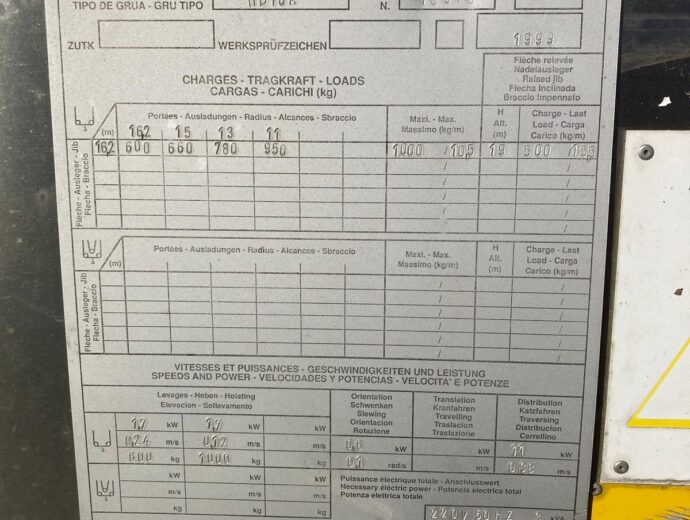 TIPO DE GRUA - GRU TIPO
N.
ZUTK WERKSPRÜFZEICHEN 1999
Flèche relevée
Nadelausleger
Raised jib
Flecha Inclinada
Braccio Impennato
CHARGES - TRAGKRAFT - LOADS
CARGAS - CARICHI (kg)
Portées - Ausladungen - Radius - Alcances - Sbraccio
Maxi. - Max.
Massimo (kg/m)
H
Alt.
(m)
Charge - Last
Load - Carga
Carico (kg/m)
(m) 16,2 15 13 11
Flèche - Ausleger - Jib
Flecha - Braccio
16,2 600 660 780 950 1000 / 10,5 19 500 /
Portées - Ausladungen - Radius - Alcances - Sbraccio
Maxi. - Max.
Massimo (kg/m)
H
Alt.
(m)
Charge - Last
Load - Carga
Carico (kg/m)
(m)
Flèche - Ausleger - Jib
Flecha - Braccio
VITESSES ET PUISSANCES - GESCHWINDIGKEITEN UND LEISTUNG
SPEEDS AND POWER - VELOCIDADES Y POTENCIAS - VELOCITA' E POTENZE
Levages - Heben - Hoisting
Elevacion - Sollevamento
Orientation
Schwenken
Slewing
Orientacion
Rotazione
Translation
Kranfahren
Travelling
Traslacion
Traslazione
Distribution
Katzfahren
Traversing
Distribucion
Carrellino
1,7 kW 1,7 kW kW kW 1,1 kW
0,24 m/s 0,12 m/s rad/s m/s m/s
600 kg 1000 kg
kW kW
m/s m/s
kg kg
Puissance électrique totale - Anschlusswert
Necessary électric power - Potencia electrica total
Potenza elettrica totale
220/50HZ kVA